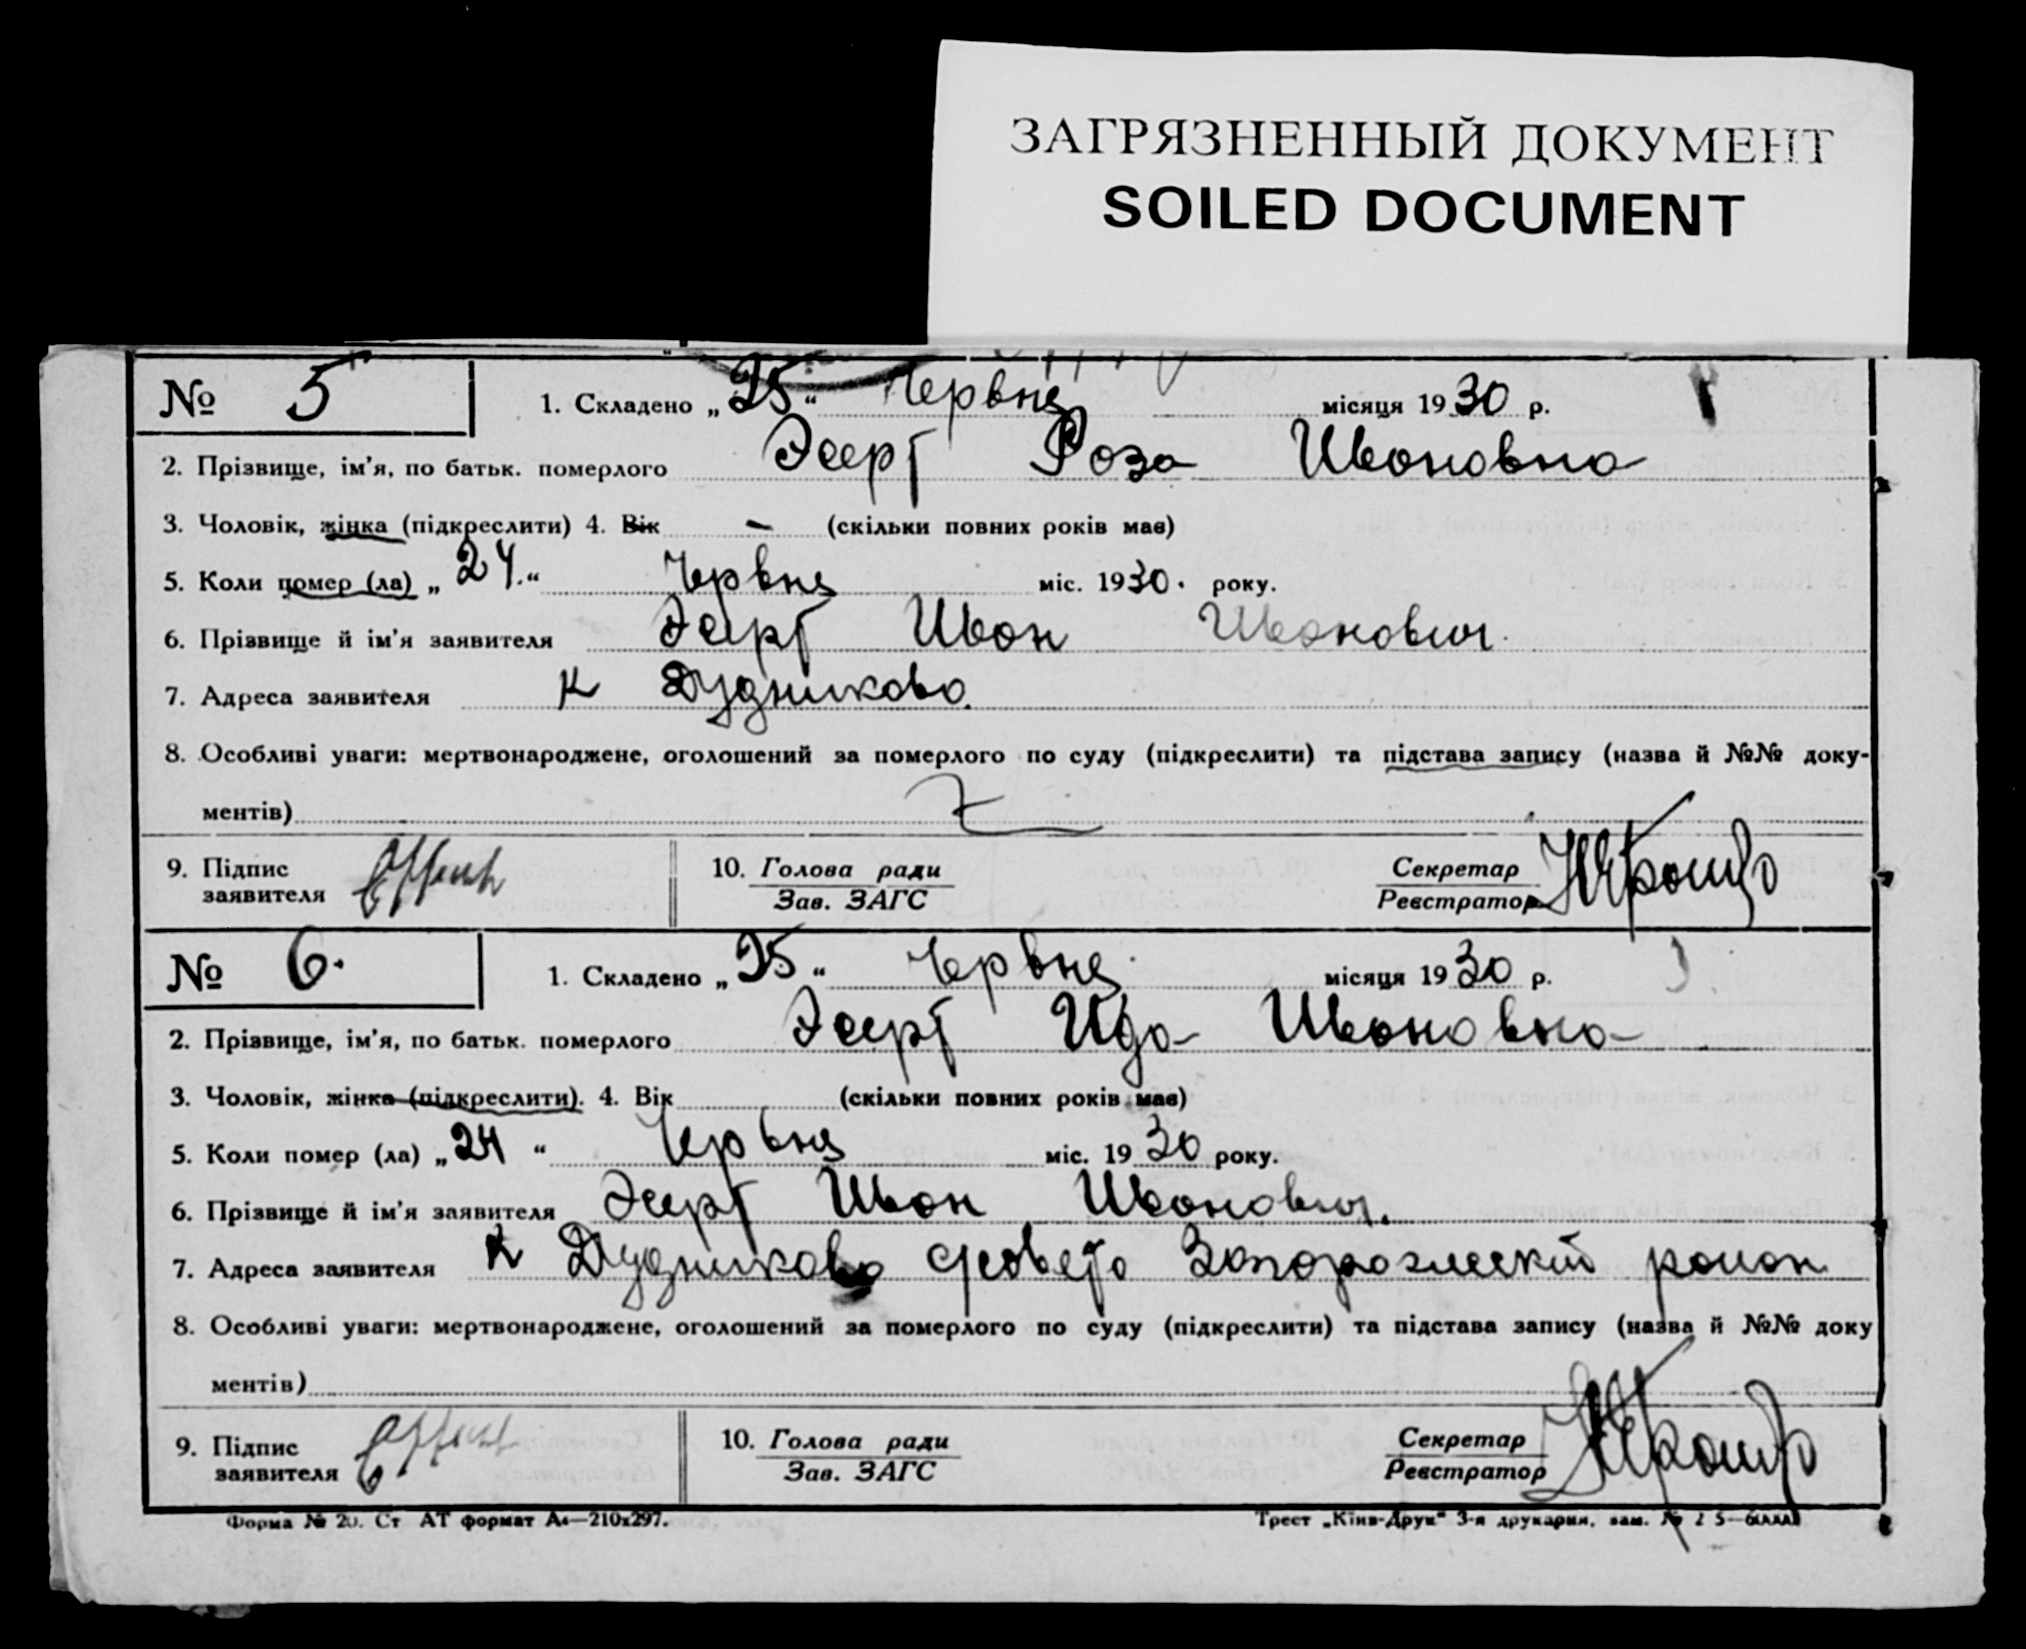 ЗАГРЯЗНЕННЫЙ ДОКУМЕНТ
SOILED DOCUMENT
№ 5 1. Складено „25“ Червня місяця 1930 р.
2. Прізвище, ім’я, по батьк. померлого Эерт Роза Ивановна
3. Чоловік, жінка (підкреслити) 4. Вік – (скільки повних років має)
5. Коли помер (ла) „24.“ Червня міс. 1930. року.
6. Прізвище й ім’я заявителя Эерт Иван Иванович
7. Адреса заявителя к Дудниково.
8. Особливі уваги: мертвонароджене, оголошений за померлого по суду (підкреслити) та підстава запису (назва й №№ доку-
ментів)
9. Підпис заявителя 10. Голова ради Зав. ЗАГС Секретар Реєстратор
№ 6. 1. Складено „25“ Червня місяця 1930 р.
2. Прізвище, ім’я, по батьк. померлого Эерт Ида Ивановна
3. Чоловік, жінка (підкреслити). 4. Вік (скільки повних років має)
5. Коли помер (ла) „24“ Червня міс. 1930 року.
6. Прізвище й ім’я заявителя Эерт Иван Иванович.
7. Адреса заявителя к Дудниково с/совета район
8. Особливі уваги: мертвонароджене, оголошений за померлого по суду (підкреслити) та підстава запису (назва й №№ доку
ментів)
9. Підпис заявителя 10. Голова ради Зав. ЗАГС Секретар Реєстратор
Форма № 20. Ст АТ формат А4—210x297. Трест „Київ-Друк“ 3-я друкарня, зам. №